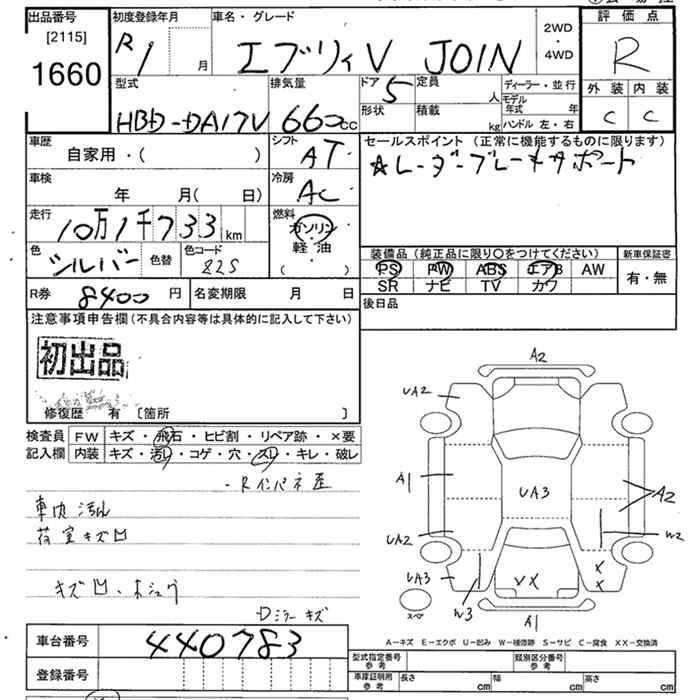 出品番号
[2115]
1660
初度登録年月
R1 月
車名・グレード
エブリィV JOIN
2WD
・
4WD
評価点
R
外装 内装
C C
型式
HBD-DA17V
排気量
660cc
ドア 5
形状
定員 人
積載 kg
ディーラー・並行
モデル年式 年
ハンドル 左・右
車歴
自家用・( )
シフト
AT
車検
年 月( 日)
冷房
AC
走行
10万1千733 km
燃料
ガソリン
軽油
( )
色
シルバー
色替
色コード
82S
セールスポイント (正常に機能するものに限ります)
☆レーダーブレーキサポート
装備品 (純正品に限り○をつけてください)
PS PW ABS エアB AW
SR ナビ TV カワ
新車保証書
有・無
R券 8400 円
名変期限 月 日
後日品
注意事項申告欄 (不具合内容等は具体的に記入して下さい)
初出品
修復歴 有 [箇所 ]
検査員
記入欄
FW キズ・飛石・ヒビ割・リペア跡・×要
内装 キズ・汚レ・コゲ・穴・スレ・キレ・破レ
・Rインパネ歪
車内汚れ
荷室キズ凹
キズ凹・
Dミラーキズ
車台番号 440783
登録番号
A2
UA2
A1
UA3
A2
UA2
W2
UA3
W3
X
X
VX
スペア
A1
A-キズ E-エクボ U-凹み W-補修跡 S-サビ C-腐食 XX-交換済
型式指定番号
参考
類別区分番号
参考
車庫証明用
参考
長さ cm
幅 cm
高さ cm